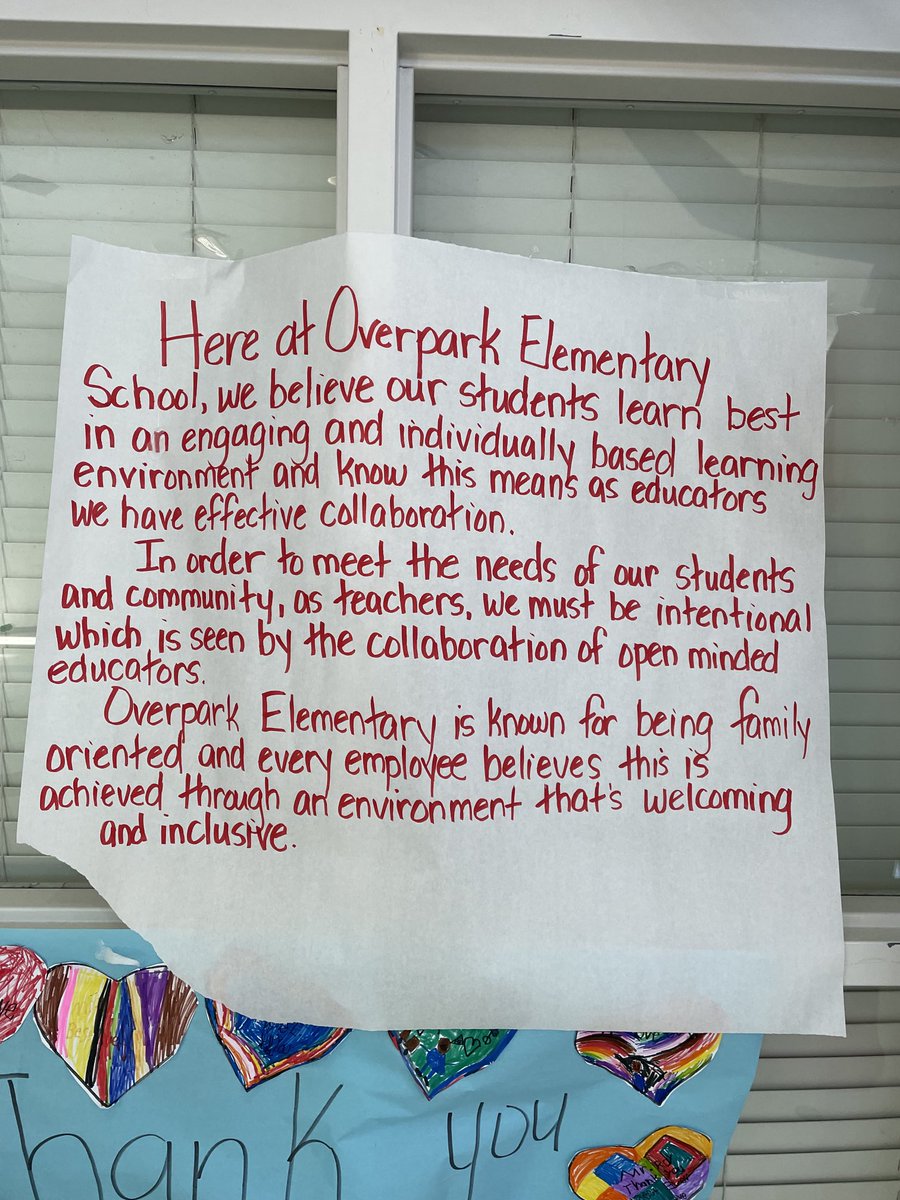 Here at Overpark Elementary
School, we believe our students learn best
in an engaging and individually based learning
environment and know this means as educators
we have effective collaboration.
In order to meet the needs of our students
and community, as teachers, we must be intentional
which is seen by the collaboration of open minded
educators.
Overpark Elementary is known for being family
oriented and every employee believes this is
achieved through an environment that's welcoming
and inclusive.
Thank you